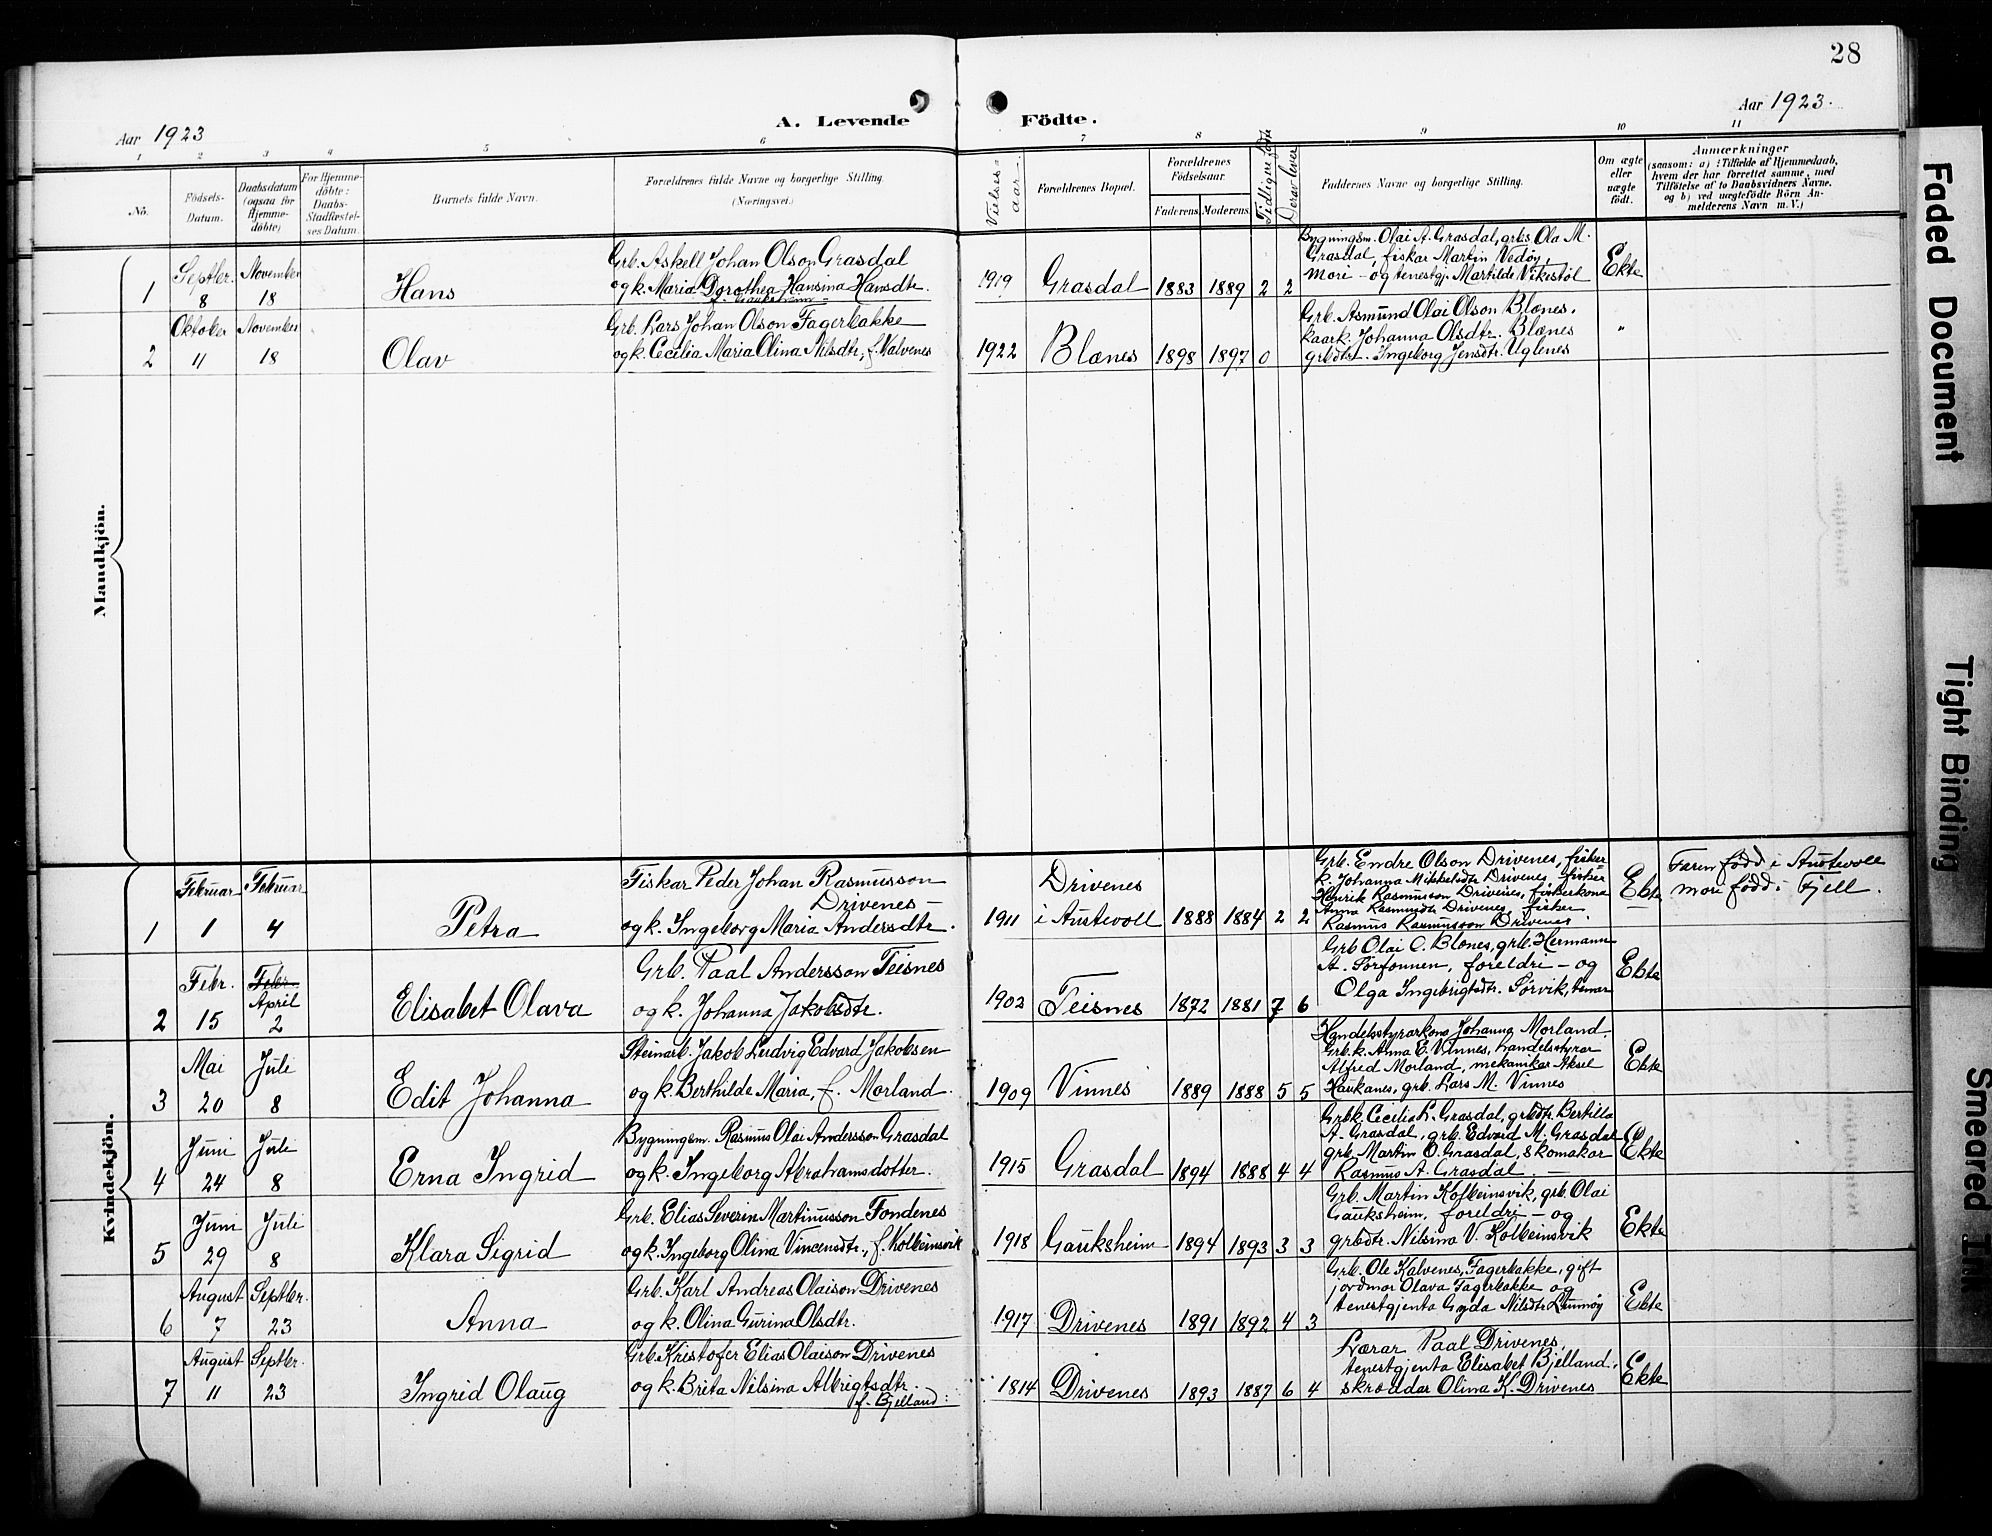 28
Aar 1923
A. Levende
Födte.
Aar 1923.
1 2 3 4 5 6 7 8 9 10 11
No.
Födsels-
Datum.
Daabsdatum
(ogsaa for
Hjemme-
döbte)
For Hjemme-
döbte:
Daabs-
Stadfæstel-
ses Datum.
Barnets fulde Navn.
Forældrenes fulde Navne og borgerlige Stilling.
(Næringsvei.)
Vielses
aar.
Forældrenes Bopæl.
Forældrenes
Födselsaar.
Faderens. Moderens.
Tidligere födte
Derav lever
Faddernes Navne og borgerlige Stilling.
Om ægte
eller
uægte
födt.
Anmærkninger
(saasom: a) i Tilfælde af Hjemmedaab,
hvem der har forrettet samme, med
Tilföielse af to Daabsvidners Navne.
og b) ved uægtefödte Börn An-
melderens Navn m.V.)
Mandkjön.
1
Septbr.
8
November
18
Hans
Grb. Askell Johan Olson Grasdal
og k. Maria Dorothea Hansina Hansdtr.
f. Gauksheim
1919
Grasdal
1883 1889 2 2
Bygningsm. Olai A. Grasdal, grbs Ola M.
Grasdal, fiskar Martin Vedöy,
mori - og tenestgj. Martilde Vikestöl
Ekte
2
Oktober
11
November
18
Olav
Grb. Lars Johan Olson Fagerbakke
og k. Cecilia Maria Olina Nilsdtr, f. Kalvenes
1922
Blænes
1898 1897 0
Grb. Asmund Olai Olson Blænes,
kaark. Johanna Olsdtr. Blænes
grbdtr. Ingeborg Jensdtr. Uglenes
"
Kvindekjön.
1
Februar
1
Februar
4
Petra
Fiskar Peder Johan Rasmusson
Drivenes -
og k. Ingeborg Maria Andersdtr.
1911
Drivenes
i Austevoll
1888 1884 2 2
Grb. Endre Olson Drivenes, fisker-
k. Johanna Mikkelsdtr Drivenes, fisker
Henrik Rasmusson Drivenes, fiskerkona
Anna Rasmusdtr Drivenes, fisker
Rasmus Rasmusson Drivenes.
Ekte
Faren född i Austevoll
mori född i Fjell.
2
Febr.
15
Febr.
April
2
Elisabet Olava
Grb. Paal Andersson Teisnes
og k. Johanna Jakobsdtr.
1902
Teisnes
1872 1881 7 6
Grb Olai O. Blænes, grb. Hermann
A. Torfonnen, foreldri - og
Olga Ingebrigtsdtr. Sörvik,
Ekte
3
Mai
20
Juli
8
Edit Johanna
Steinarb. Jakob Ludvig Edvard Jakobsen
og k. Berthilde Maria, f. Morland
1909
Vinnes
1889 1888 5 5
Handelsstyrarkona Johanna Morland
Grb. k. Anna E. Vinnes, handelsstyrar
Alfred Morland, mekanikar Aksel
Haukanes, grb. Lars M. Vinnes
Ekte
4
Juni
24
Juli
8
Erna Ingrid
Bygningsm. Rasmus Olai Andersson Grasdal
og k. Ingeborg Abrahamsdotter.
1915
Grasdal
1894 1888 4 4
Grbk. Cecilia L. Grasdal, grbdtr. Bertilla
A. Grasdal, grb. Edvard M. Grasdal
grb. Martin O. Grasdal, skomakar
Rasmus A. Grasdal.
Ekte
5
Juni
29
Juli
8
Klara Sigrid
Grb. Elias Severin Martinusson Fondenes
og k. Ingeborg Olina Vincensdtr., f. Kolbeinsvik
1918
Gauksheim
1894 1893 3 3
Grb. Martin Kolbeinsvik, grb. Olai
Gauksheim, foreldri - og
grbdtr. Nilsina V. Kolbeinsvik
Ekte
6
August
7
Septbr.
23
Anna
Grb. Karl Andreas Olaison Drivenes
og k. Olina Gurina Olsdtr.
1917
Drivenes
1891 1892 4 3
Grb. Ole Kalvenes, Fagerbakke, gift
jordmor Olava Fagerbakke og
tenestgjenta Gyda Nilsdtr
Ekte
7
August
11
Septbr.
23
Ingrid Olaug
Grb. Kristofer Elias Olaison Drivenes
og k. Brita Nilsina Albrigtsdtr.
f. Bjelland.
1814
Drivenes
1893 1887 6 4
Lærar Paal Drivenes,
tenestgjenta Elisabet Bjelland,
skræddar Olina K. Drivenes
Ekte
Faded Document
Tight Binding
Smeared Ink